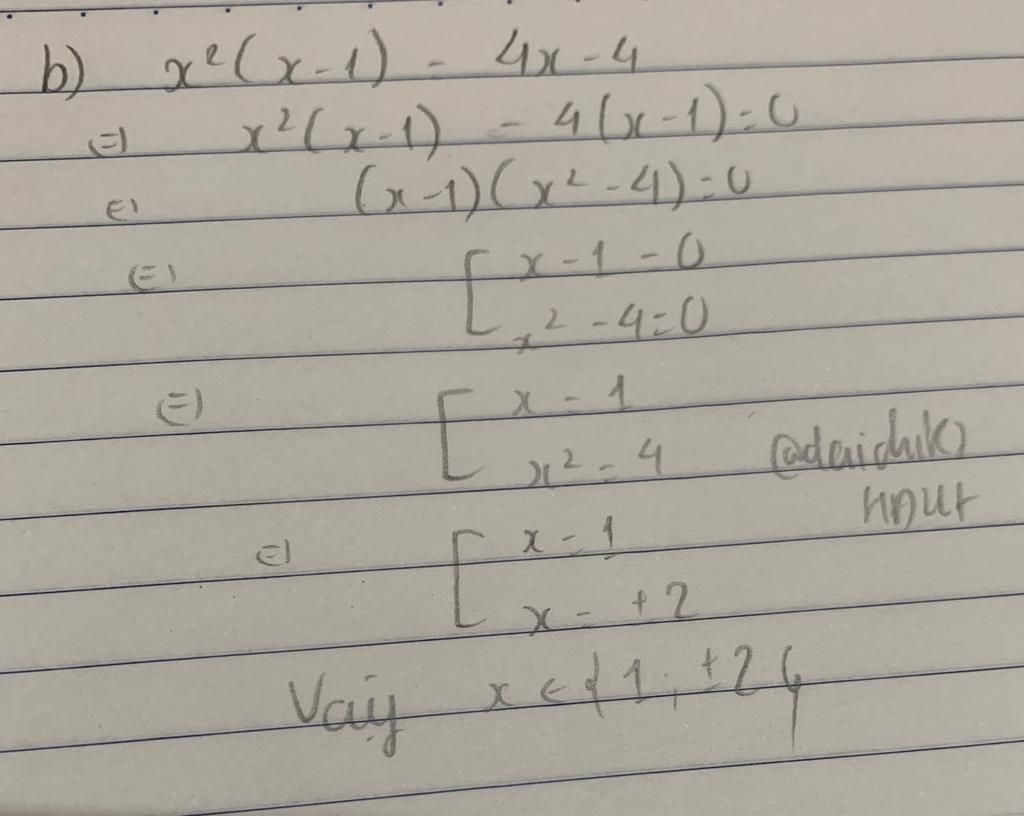 b) x²(x-1) - 4x-4
⇔ x²(x-1) - 4(x-1)=0
⇔ (x-1)(x²-4)=0
⇔ [ x-1=0
x²-4=0
⇔ [ x=1
x²=4
⇔ [ x=1
x=±2
Vậy x∈{1; ±2}